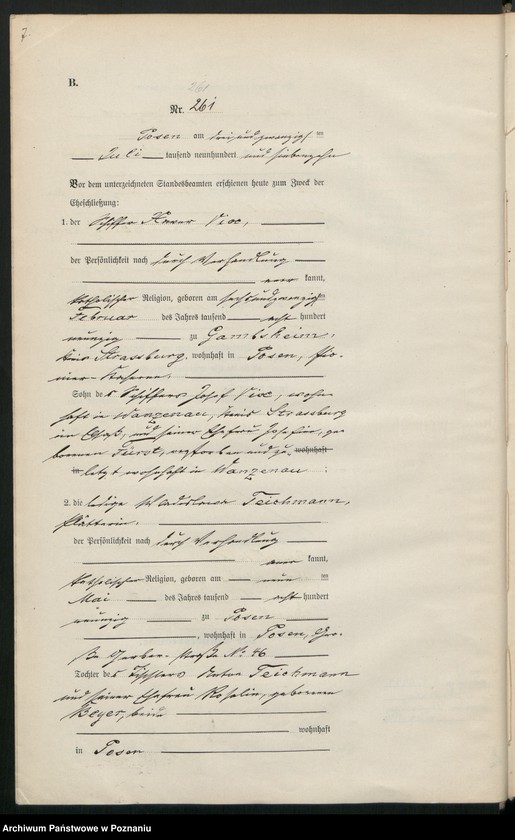 7
B.
261
Nr. 261
Posen am dreiundzwanzigsten
Juli tausend neunhundert und siebenzehn
Vor dem unterzeichneten Standesbeamten erschienen heute zum Zweck der
Eheschließung:
1. der Schiffer Xaver Vix,
der Persönlichkeit nach durch Verhandlung
aner kannt,
katholischer Religion, geboren am sechsundzwanzigsten
Februar des Jahres tausend acht hundert
neunzig zu Gambsheim,
Kreis Strassburg, wohnhaft in Posen, Pio-
nier-Kaserne,
Sohn des Schiffers Josef Vix, wohn-
haft in Wanzenau, Kreis Strassburg
im Elsaß, und seiner Ehefrau Josefine, ge-
borenen verstorben und zu- wohnhaft
in letzt wohnhaft in Wanzenau.
2. die ledige Wladislawa Teichmann,
Plätterin,
der Persönlichkeit nach durch Verhandlung
aner kannt,
katholischer Religion, geboren am neun ten
Mai des Jahres tausend acht hundert
neunzig zu Posen
, wohnhaft in Posen, Gro-
ße Gerber-Straße Nr. 46
Tochter des Tischlers Anton Teichmann
und seiner Ehefrau Rosalie, geborenen
Beyer, beide
wohnhaft
in Posen
Archiwum Państwowe w Poznaniu